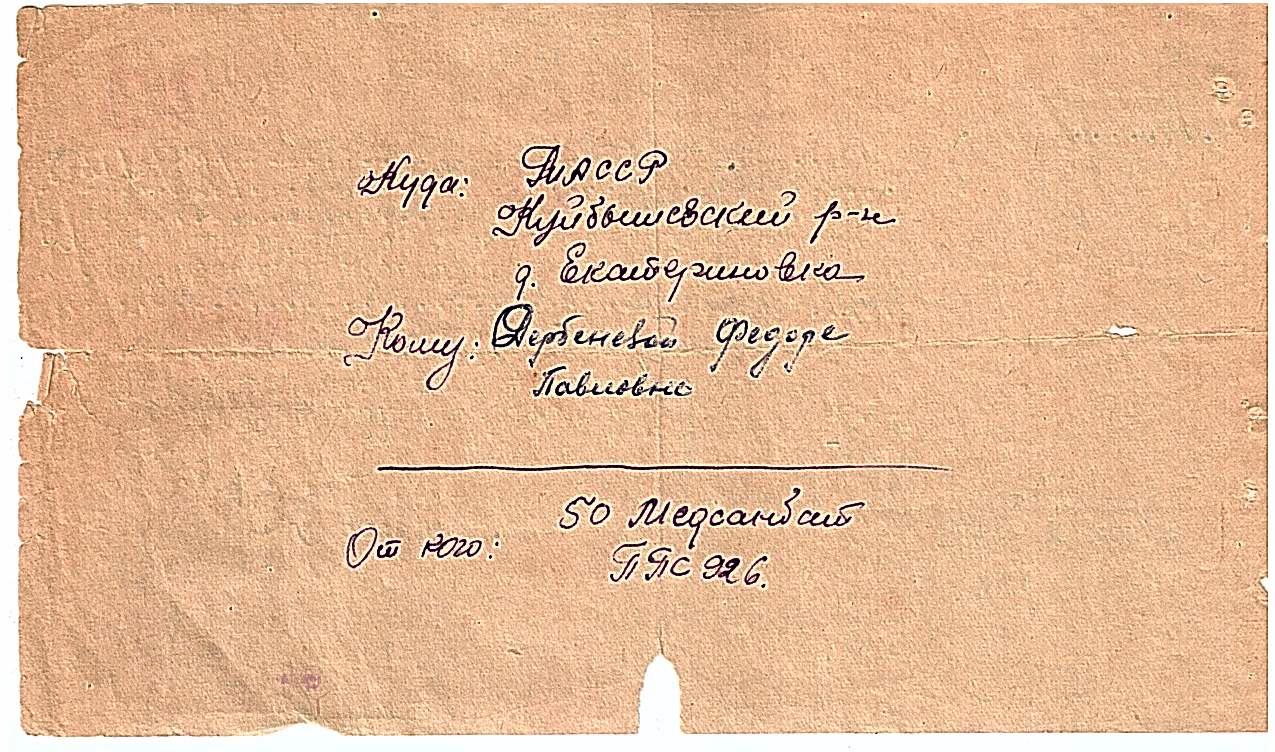 Куда: ТАССР
Куйбышевский р-н
д. Екатериновка
Кому: Дербеневой Федоре
Павловне
50 Медсанбат
От кого:
ППС 926.